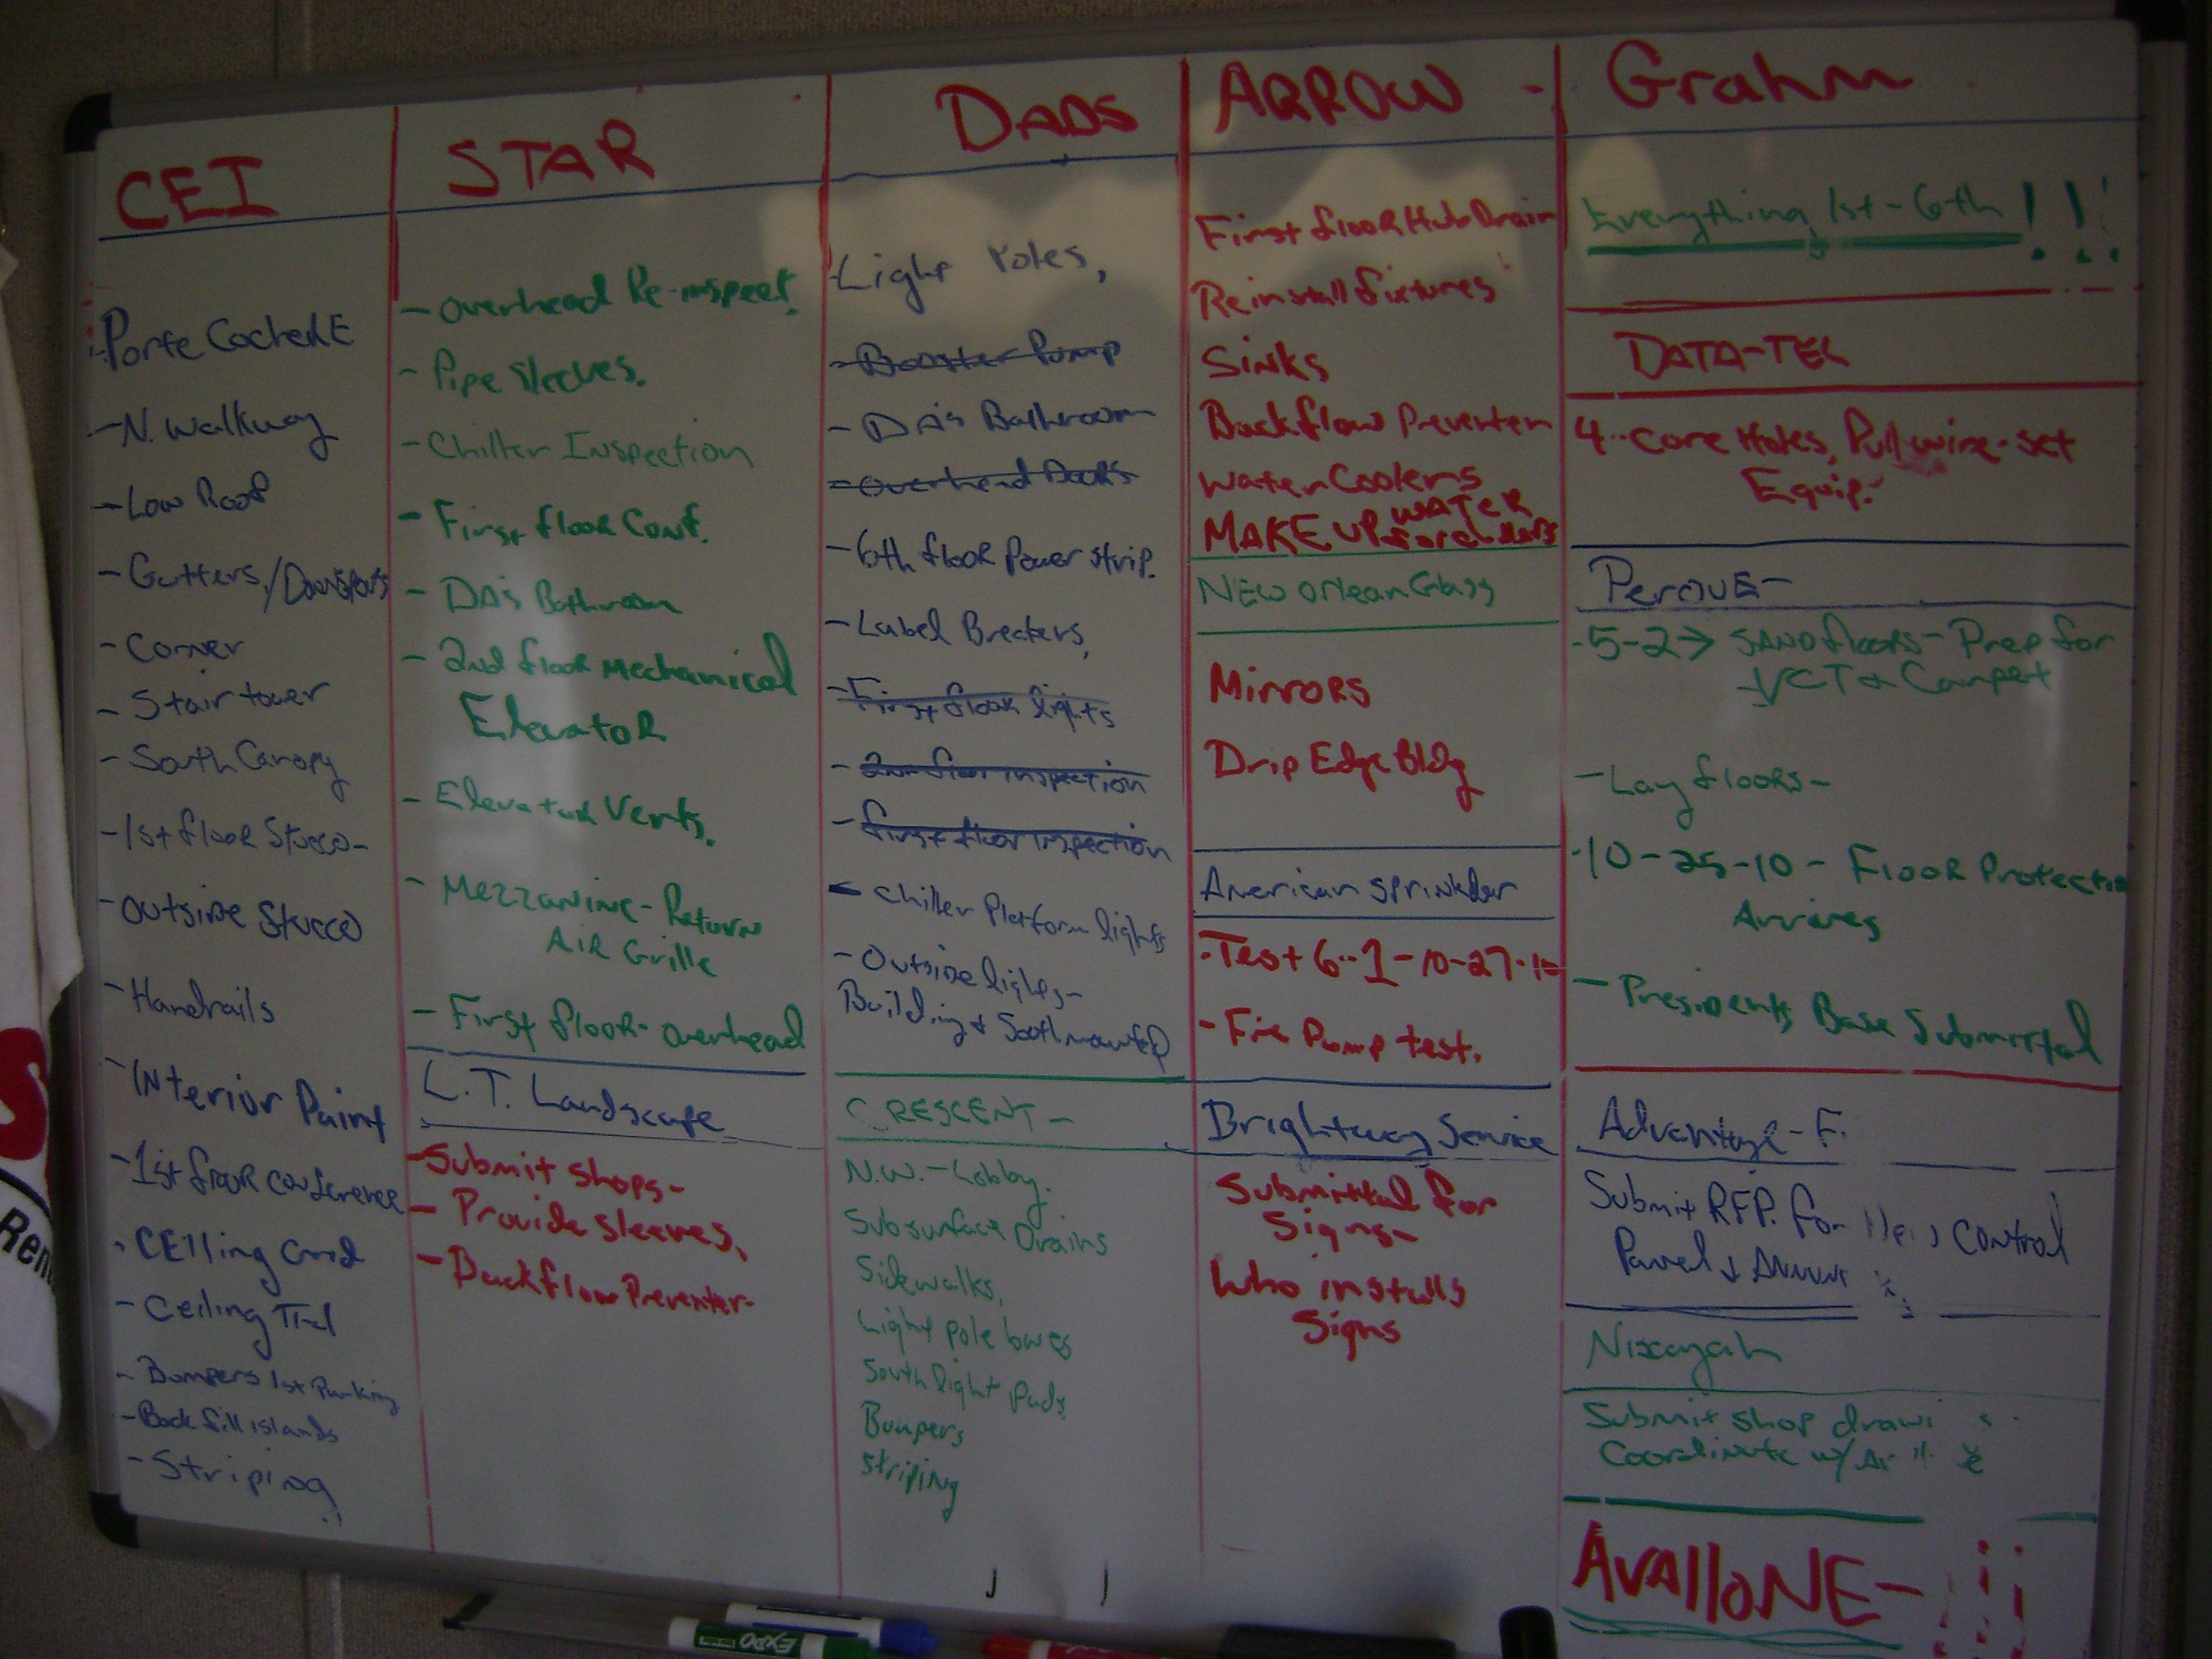 CEI
Porte CocherE
-N. Walkway
-Low Roof
-Gutters/Downspouts
-Corner
-Stair tower
-South Canopy
-1st floor Stucco-
-Outside Stucco
-Handrails
-Interior Paint
-1st floor conference
-CEIling Grid
-Ceiling Tile
-Bumpers 1st Parking
-Back fill islands
-Striping
STAR
-Overhead Re-inspect.
-Pipe Sleeves.
-Chiller Inspection
-First floor Conf.
-DA's Bathroom
-2nd floor Mechanical
Elevator
-Elevator Vents.
-Mezzanine-Return
Air Grille
-First floor-overhead
L.T. Landscape
-Submit shops-
-Provide sleeves,
-Backflow Preventer-
DADS
-Light Poles,
-Booster Pump
-DA's Bathroom
-Overhead Doors
-6th floor Power strip.
-Label Breakers,
-First floor lights
-2nd floor inspection
-first floor inspection
-Chiller Platform lights
-Outside lights-
Building &
CRESCENT-
N.W.-Lobby.
Subsurface Drains
Sidewalks,
Light pole bases
South light Pads
Bumpers
Striping
ARROW-
First floor Hub Drain
Reinstall fixtures
Sinks
Backflow Preventer
Water Coolers
MAKE UP WATER
for
NEW Orlean Glass
Mirrors
Drip Edge Bldg
American Sprinkler
-Test 6-1-10-27-10
-Fire Pump test.
Brightway Service
Submittal for
Signs-
Who installs
Signs
Grahm
Everything 1st-6th !!!
DATA-TEL
4-Core Holes, Pull wire-set
Equip.
Perque-
-5-2→ SAND floors-Prep for
VCT & Carpet
-Lay floors-
-10-25-10-Floor Protection
Arrives
-Presidents Base Submittal
Advantage-F.
Submit RFP. For Control
Panel
Nixayah
Submit shop
Coordinate w/
AvalloNE- !!!
EXPO
Ren